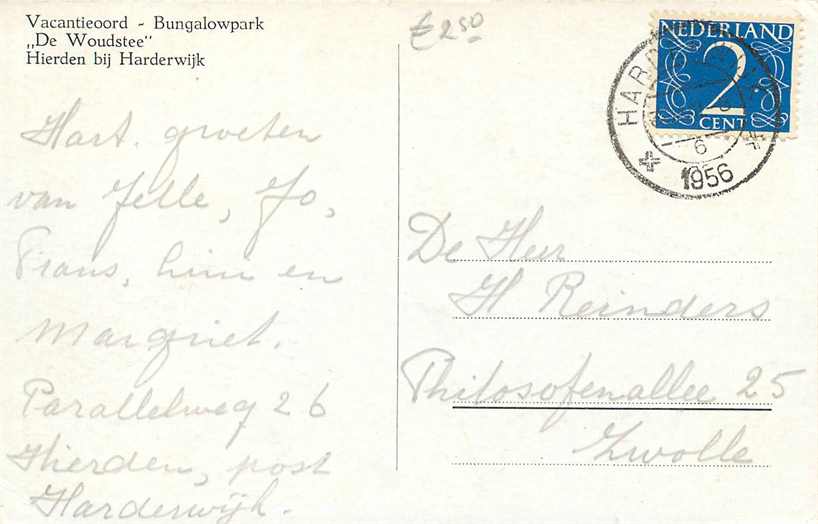 Vacantieoord - Bungalowpark
„De Woudstee"
Hierden bij Harderwijk
£ 2 50
NEDERLAND
2
CENT
HARD
6
1956
Hart. groeten
van Jelle, Jo,
Frans, Wim en
Margriet.
Parallelweg 26
Hierden, post
Harderwijk.
De Heer
H Reinders
Philosofenallee 25
Zwolle